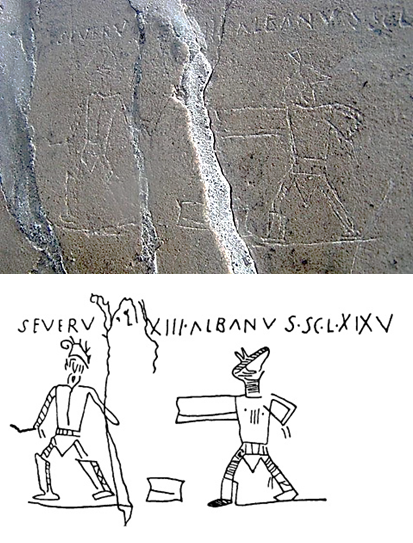 SEVERV ALBANV S SCL
SEVERV XIII·ALBANV S·SC·L·XIXV